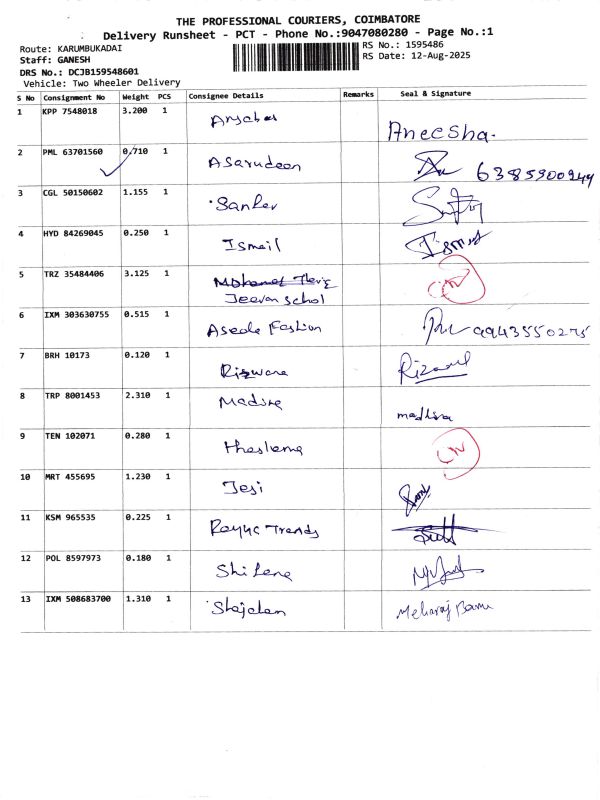 THE PROFESSIONAL COURIERS, COIMBATORE
Delivery Runsheet - PCT - Phone No.:9047080280 - Page No.:1
Route: KARUMBUKADAI
RS No.: 1595486
Staff: GANESH
RS Date: 12-Aug-2025
DRS No.: DCJB159548601
Vehicle: Two Wheeler Delivery
S No Consignment No Weight PCS Consignee Details Remarks Seal & Signature
1 KPP 7548018 3.200 1 Aneesha.
2 PML 63701560 0.710 1 Asarudeen 6385900949
3 CGL 50150602 1.155 1 Sanker
4 HYD 84269045 0.250 1 Ismail Ismail
5 TRZ 35484406 3.125 1 Mohamed
Jeevan School
6 IXM 303630755 0.515 1 Aseela Fashion 9943550275
7 BRH 10173 0.120 1 Rizwana Rizwana
8 TRP 8001453 2.310 1 Madina madhina
9 TEN 102071 0.280 1 thaslema
10 MRT 455695 1.230 1 Jesi
11 KSM 965535 0.225 1 Trends
12 POL 8597973 0.180 1
13 IXM 508683700 1.310 1 Shajahan Meharaj Banu